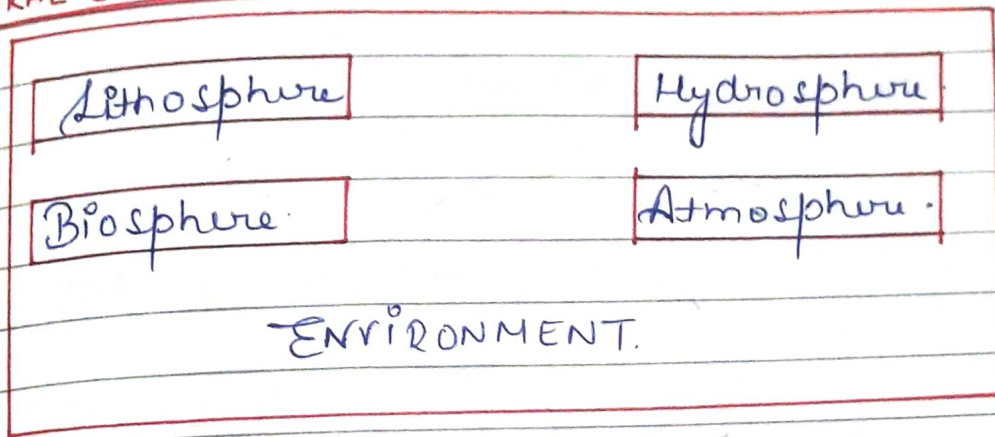 Lithosphere Hydrosphere
Biosphere. Atmosphere.
ENVIRONMENT.